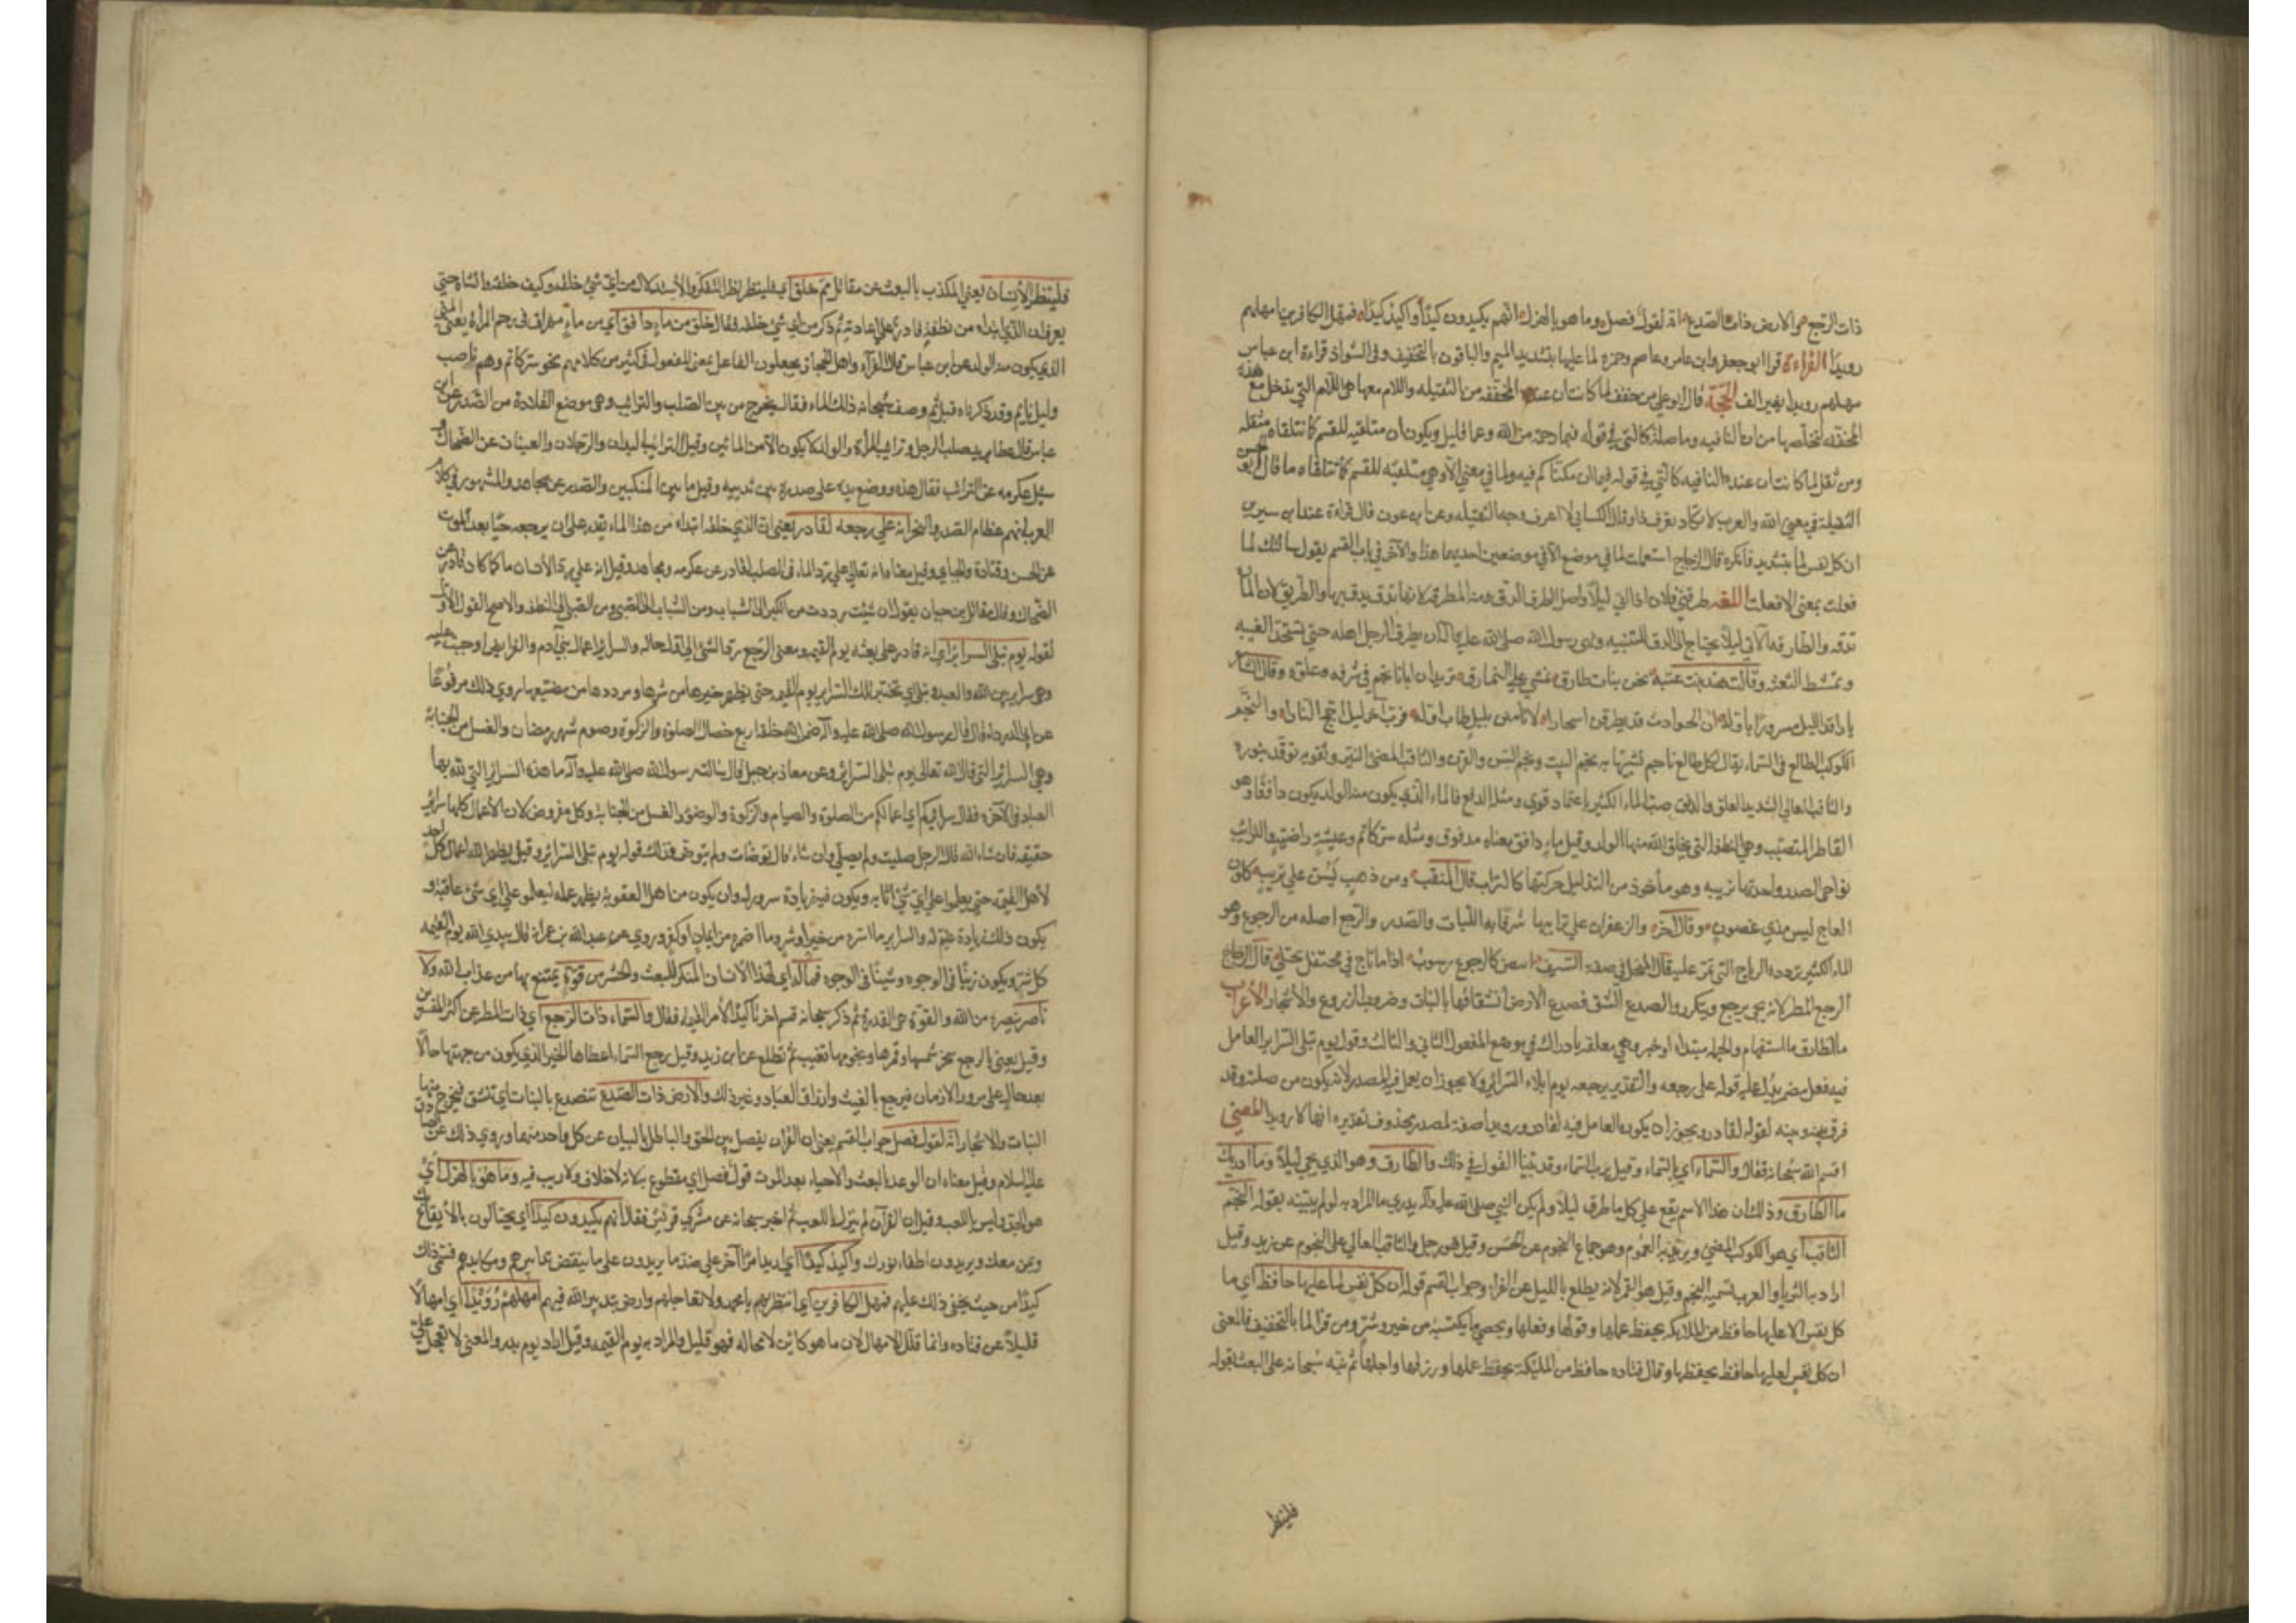 ذات الرجع والارض ذات الصدع انه لقول فصل وما هو بالهزل انهم يكيدون كيدًا واكيد كيدًا فمهل الكافرين امهلهم
رويدًا القراءة قرأ ابو جعفر وابن عامر وعاصم وحمزه لما عليها بتشديد الميم والباقون بالتخفيف وفي الشواذ قراءة ابن عباس
مهلهم رويدا بغير الف الحجة قال ابو علي من خفف لما كانت ان عنده المخففه من الثقيله واللام معها هي اللام التي تدخل مع هذه
المخففه لتخلصها من ان النافيه وما صلة كالتي في قوله فبما رحمة من الله وعما قليل ويكون ان متلقيه للقسم كما تتلقاه مثقله
ومن ثقل لما كانت ان عنده النافيه كالتي في قوله فيما ان مكناكم فيه ولما في معنى الا وهي متلقيه للقسم كما تتلقاه ما قال ابو الحسن
الثقيلة في معنى الا والعرب لا تكاد تعرف ذا وقال الكسائي لا اعرف وجه التثقيل وعن ابن عون قال قراءة عند ابن سيرين
ان كل نفس لما بتشديد فانكره قال الزجاج استعملت لما في موضع الا في موضعين احدهما هذا والآخر في باب القسم يقول سالتك لما
فعلت بمعنى الا فعلت اللغة طرقني فلان اذا اتى ليلاً واصل الطرق الدق ومنه المطرقه لانها يدق بها والطريق لان المارة
تدقه والطارق الآتي ليلاً يحتاج الى الدق للتنبيه ونهى رسول الله صلى الله عليه ان يطرق الرجل اهله حتى تستحد المغيبه
وتمتشط الشعثه وقالت هند بنت عتبه نحن بنات طارق نمشي على النمارق تريد ان ابانا نجم في شرفه وعلوه وقال الشاعر
يا راقد الليل مسرورًا باوله ان الحوادث قد يطرقن اسحارا لا تامنن بليل طاب اوله فرب آخر ليل اجج النارا والنجم
الكوكب الطالع في السماء يقال لكل طالع ناجم تشبيها به نجم النبت ونجم السن والقرن والثاقب المضئ النير وثقوبه توقده بنوره
والثاقب العالي الشديد العلو والدفق صب الماء الكثير باعتماد قوي ومثله الدفع فالماء الذي يكون منه الولد يكون دافقًا وهو
القاطر المتصبب وهي النطفة التي يخلق الله منها الولد وقيل ماء دافق معناه مدفوق ومثله سر كاتم وعيشة راضية والترائب
نواحي الصدر واحدتها تريبه وهو مأخوذ من التذليل حركتها كالتراب قال المثقب ومن ذهب يسن على تريب كلون
العاج ليس بذي غضون وقال آخر والزعفران على ترايبها شرقا به اللبات والصدر والرجع اصله من الرجوع وهو
الماء الكثير تردده الرياح التي تمر عليه قال المتنخل في صفة السيف ابيض كالرجع رسوب اذا ما ثاخ في محتفل يختلي قال الزجاج
الرجع المطر لانه يجئ يرجع ويتكرر والصدع الشق فصدع الارض انشقاقها بالنبات وضروب الزروع والأشجار الاعراب
ما الطارق ما استفهام والجمله مبتداء وخبر وهي معلقه بادراك في موضع المفعول الثاني والثالث وقوله يوم تبلى السراير العامل
فيه فعل مضمر يدل عليه قوله على رجعه والتقدير يرجعه يوم ابلاء السرائر ولا يجوز ان يعمل فيه المصدر لانه يكون من صلته وقد
فرق بينه وبينه لقوله لقادر ويجوز ان يكون العامل فيه لقادر ورويدا صفة لمصدر محذوف تقديره امهالا رويدا المعنى
اقسم الله سبحانه فقال والسماء اي بالسماء وقيل برب السماء وقد بينا القول في ذلك والطارق وهو الذي يجئ ليلاً وما ادريك
ما الطارق وذلك ان هذا الاسم يقع على كل ما طرق ليلاً ولم يكن النبي صلى الله عليه وآله يدري ما المراد به لو لم يبينه بقوله النجم
الثاقب اي هو الكوكب المضئ ويريد به العموم وهو جماع النجوم عن الحسن وقيل هو زحل والثاقب العالي على النجوم عن ابن زيد وقيل
اراد به الثريا والعرب تسميه النجم وقيل هو القمر لانه يطلع بالليل عن الفراء وجواب القسم قوله ان كل نفس لما عليها حافظ اي ما
كل نفس الا عليها حافظ من الملايكه يحفظ عملها وقولها وفعلها ويحصي ما يكتسبه من خير وشر ومن قرأ لما بالتخفيف فالمعنى
ان كل نفس لعليها حافظ يحفظها وقال قتاده حافظ من المليكة يحفظ عملها ورزقها واجلها ثم نبه سبحانه على البعث بقوله
فلينظر
فلينظر الإنسان يعني المكذب بالبعث عن مقاتل مم خلق اي فلينظر نظر التفكر والاستدلال من اي شئ خلقه وكيف خلقه وانشاه حتى
يعرف ان الذي ابتداه من نطفة قادر على اعادته ثم ذكر من اي شئ خلقه فقال خلق من ماء دافق اي من ماء مهراق في رحم المرأة يعني المني
الذي يكون منه الولد عن ابن عباس قال الفراء واهل الحجاز يجعلون الفاعل بمعنى المفعول في كثير من كلامهم نحو سر كاتم وهم ناصب
وليل نايم وقد ذكرناه قبل ثم وصف سبحانه ذلك الماء فقال يخرج من بين الصلب والترائب وهو موضع القلادة من الصدر عن ابن
عباس قال عطا يريد صلب الرجل وترائب المرأة والولد لا يكون الا من المائين وقيل الترائب اليدان والرجلان والعينان عن الضحاك و
سئل عكرمه عن الترائب فقال هذه ووضع يده على صدره بين ثدييه وقيل ما بين المنكبين والصدر عن مجاهد والمشهور في كلام
العرب انهم عظام الصدر والنحر انه على رجعه لقادر يعني ان الذي خلقه ابتداء من هذا الماء يقدر على ان يرجعه حيًا بعد الموت
عن الحسن وقتادة والجبائي وقيل معناه انه تعالى على رد الماء في الصلب لقادر عن عكرمه ومجاهد وقيل انه على رد الانسان ماء كما كان قادر عن
الضحاك وقال مقاتل بن حيان يقول ان شئت رددت من الكبر الى الشباب ومن الشباب الى الصبى ومن الصبى الى النطفه والاصح القول الأول
لقوله يوم تبلى السرائر اي انه قادر على بعثه يوم القيمه ومعنى الرجع رد الشئ الى اول حاله والسراير اعمال بني آدم والفرايض اوجبت عليه
وهي سراير بين الله والعبد تبلى اي تختبر تلك السراير يوم القيمه حتى يظهر خيرها من شرها ومؤديها من مضيعها روي ذلك مرفوعًا
عن ابي الدرداء قال قال رسول الله صلى الله عليه وآله ضمن الله خلقه اربع خصال الصلوة والزكوة وصوم شهر رمضان والغسل من الجنابة
وهي السراير التي قال الله تعالى يوم تبلى السرائر وعن معاذ بن جبل قال سالت رسول الله صلى الله عليه وآله ما هذه السراير التي تبلى بها
العباد في الآخرة فقال سرايركم اي اعمالكم من الصلوة والصيام والزكوة والوضوء والغسل من الجنابة وكل مفروض لان الاعمال كلها سراير
حقيقه فان شاء الله قال الرجل صليت ولم يصلي وان شاء قال توضات ولم يتوضى فذلك قوله يوم تبلى السرائر وقيل يظهر الله اعمال كل احد
لأهل القيمه حتى يعلموا على اي شئ اثابه ويكون فيه زيادة سرور له وان يكون من اهل العقوبه يظهر عمله ليعلموا على اي شئ عاقبه و
يكون ذلك زيادة غم له والسراير ما اسره من خير او شر وما اضمره من ايمان او كفر وروي عن عبد الله بن عمر انه قال يبدي الله يوم القيمه
كل سر ويكون زينًا في الوجوه وشينًا في الوجوه فما له اي لهذا الأنسان المنكر للبعث والحشر من قوة يمتنع بها من عذاب الله ولا
ناصر ينصره من الله والقوة هي القدرة ثم ذكر سبحانه قسما اخر تاكيدًا لامر القيمه فقال والسماء ذات الرجع اي ذات المطر عن اكثر المفسرين
وقيل يعني بالرجع شمسها وقمرها ونجومها تغيب ثم تطلع عن ابن زيد وقيل رجع السماء اعطاءها الخير الذي يكون من جهتها حالًا
بعد حال على مرور الازمان فيرجع بالغيث وارزاق العباد وغير ذلك والأرض ذات الصدع تتصدع بالنبات اي تنشق فيخرج منها
النبات والأشجار انه لقول فصل جواب القسم يعني ان القرآن يفصل بين الحق والباطل بالبيان عن كل واحد منهما وروي ذلك عن الصادق
عليه السلام وقيل معناه ان الوعد بالبعث والاحياء بعد الموت قول فصل اي مقطوع به لا خلاف ولا ريب فيه وما هو بالهزل اي
هو الجد وليس باللعب وقيل ان القرآن لم ينزل باللعب ثم اخبر سبحانه عن مشركي قريش فقال انهم يكيدون كيدًا اي يحتالون بالأيقاع بك
وبمن معك ويريدون اطفاء نورك واكيد كيدًا اي اريد امرًا آخر على ضد ما يريدون على ما ينقض تدابيرهم ومكايدهم فسمى ذلك
كيدًا من حيث يخفى ذلك عليهم فمهل الكافرين اي انتظر بهم يا محمد ولا تعاجلهم وارض بتدبير الله فيهم امهلهم رويدًا اي امهالًا
قليلاً عن قتاده وانما قلل الامهال لان ما هو كائن لا محاله فهو قليل والمراد به يوم القيمه وقيل اراد يوم بدر والمعنى لا تعجل علي